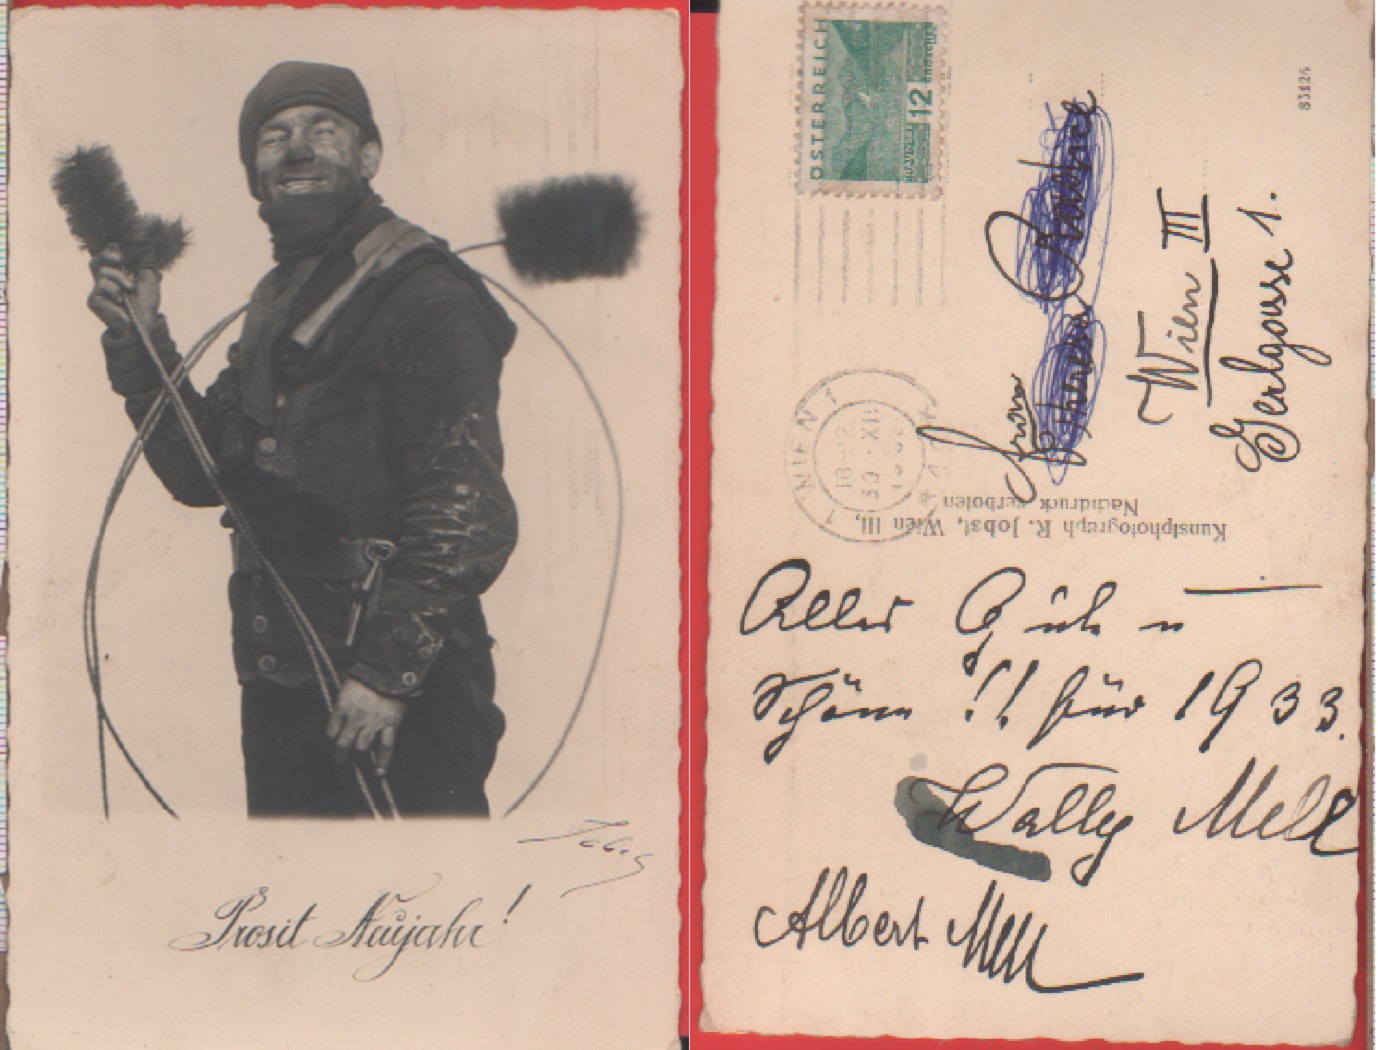 Prosit Neujahr!
ÖSTERREICH
12
GROSCHEN
WIEN 1
18-
30 XII
1
83126
Frau
Wien III
Gerlgasse 1.
Kunstphotograph R. Jobst, Wien III,
Nachdruck verboten
Alles Gute u
Schöne !! für 1933.
Wally Mell
Albert Mell